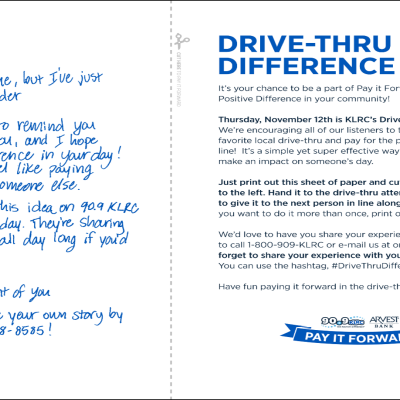 me, but I've just
der
to remind you
you, and I hope
rence in your day!
el like paying
someone else.
this idea on 90.9 KLRC
day. They're sharing
all day long if you'd
nt of you
e your own story by
8-8585!
DRIVE-THRU
DIFFERENCE
It's your chance to be a part of Pay it For
Positive Difference in your community!
Thursday, November 12th is KLRC's Drive
We're encouraging all of our listeners to t
favorite local drive-thru and pay for the p
line! It's a simple yet super effective way
make an impact on someone's day.
Just print out this sheet of paper and cu
to the left. Hand it to the drive-thru atte
to give it to the next person in line along
you want to do it more than once, print o
We'd love to have you share your experie
to call 1-800-909-KLRC or e-mail us at o
forget to share your experience with you
You can use the hashtag, #DriveThruDiffe
Have fun paying it forward in the drive-th
90.9 KLRC ARVEST
BANK
PAY IT FORWA